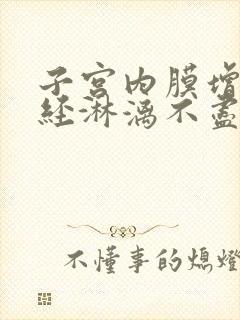 子宮內膜增
經淋漓不盡
不懂事的熄燈